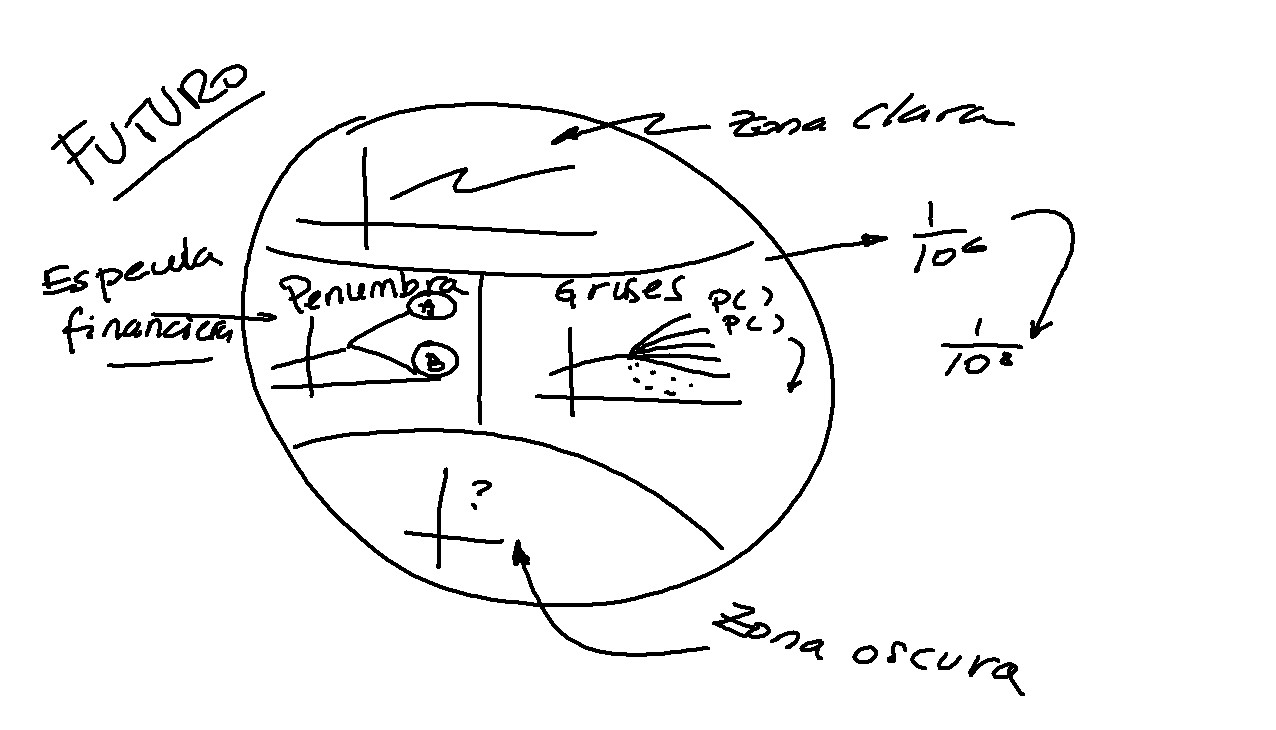 FUTURO
Zona clara
1
10⁶
Especula
financiera
Penumbra
A
B
Grises
P( )
P( )
1
10⁸
?
Zona oscura